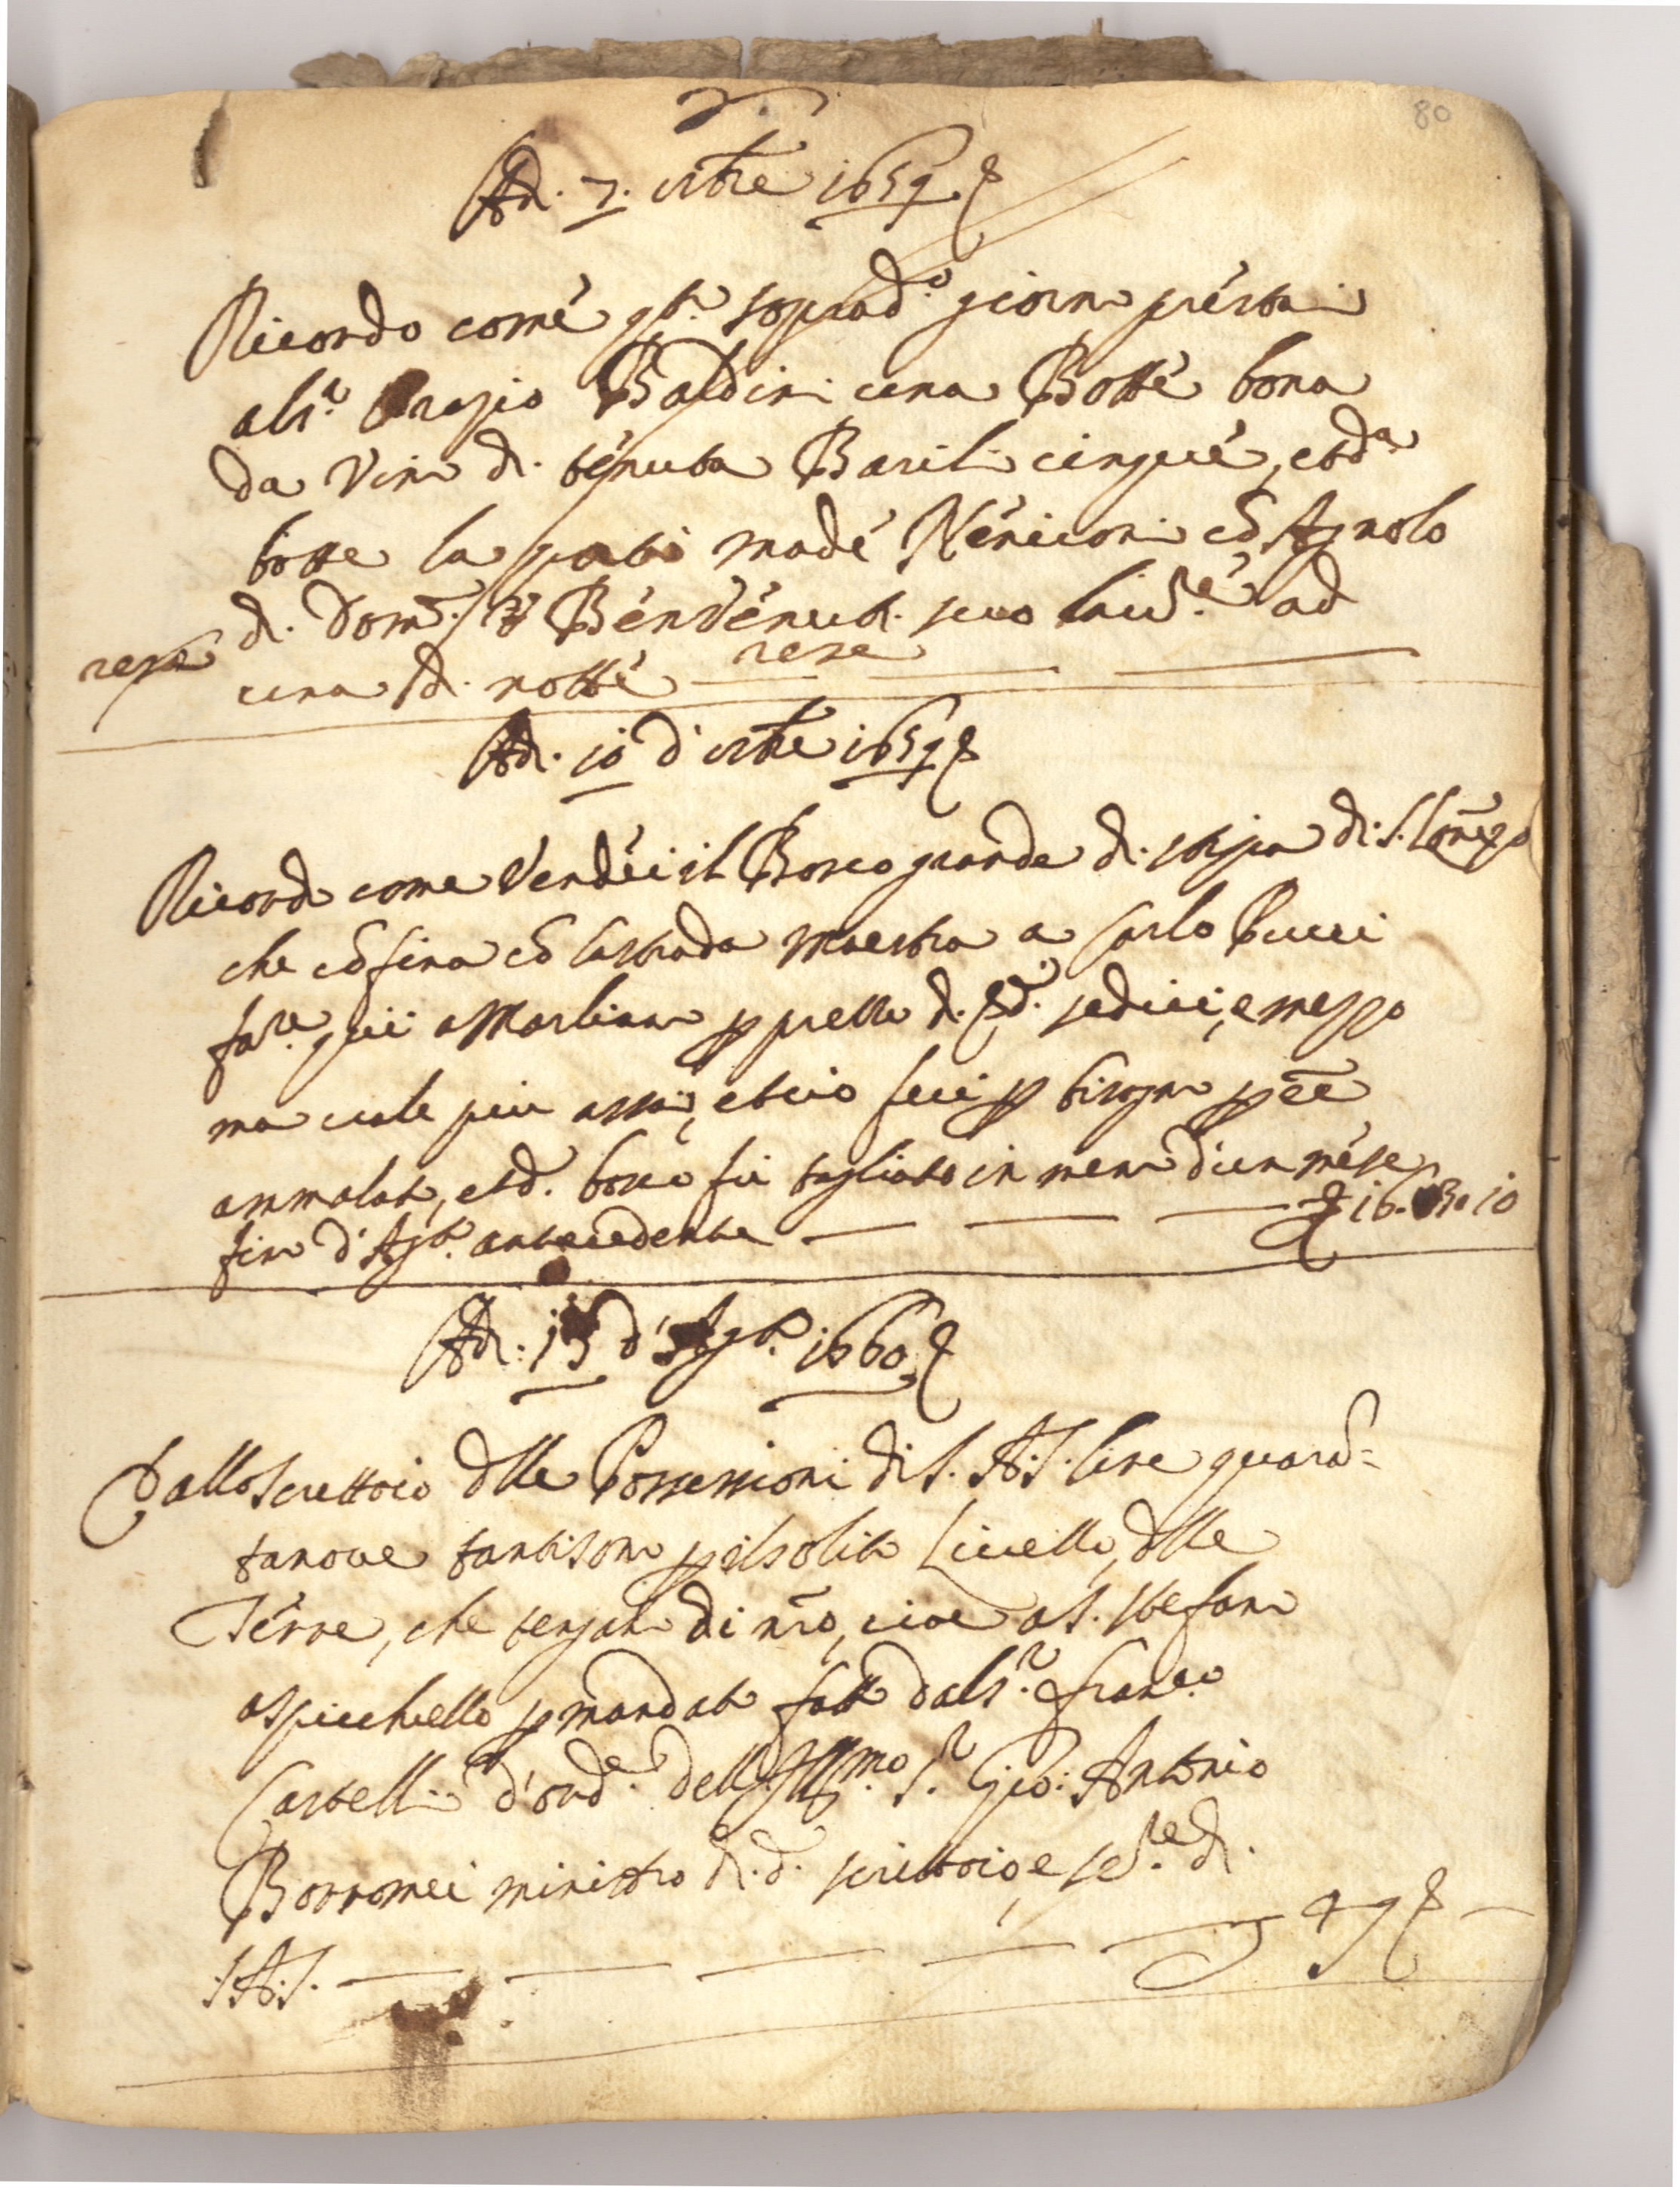 80
Adi. 7. ottbre 1659
Ricordo come qto. soprad.o giorno prestai
al s.r Orazio Baldini una Botte bona
da Vino di tenuta Barili cinque, et d.a
botte la portò Nencioni cō Agnolo
di Dom.co Benvenuti suo lav.re ad
resa
una di notte resa
Adi. 10 d' ottbre 1659
Ricordo come Vendei il Bosco grande di scopa di S. Lorēzo
che cōfina cō la strada maestra a Carlo Pucci
qui a Marliano p prezzo di sedici, e mezzo
ma vale piu assai, et ciò feci p bisogno
ammalato, et d. bosco fu tagliato in meno d'un mese
fino d'Ag.to antecedente 16. 3. 10
Adi: 15 d' Ag.to 1660
Dallo scrittoio dlle Possessioni di S. A. S. lire quarā=
tanove tanti sono p il solito Livello, dlle
Terre, che tengano di nro, cioè a S. Stefano
a Spicchiello p mandato fatto dal s.r Franc.o
Castelli d'ord.e dell Ill.mo S.r Gio: Antonio
Borromei ministro di d. scrittoio, e ser.re di
S. A. S. 49